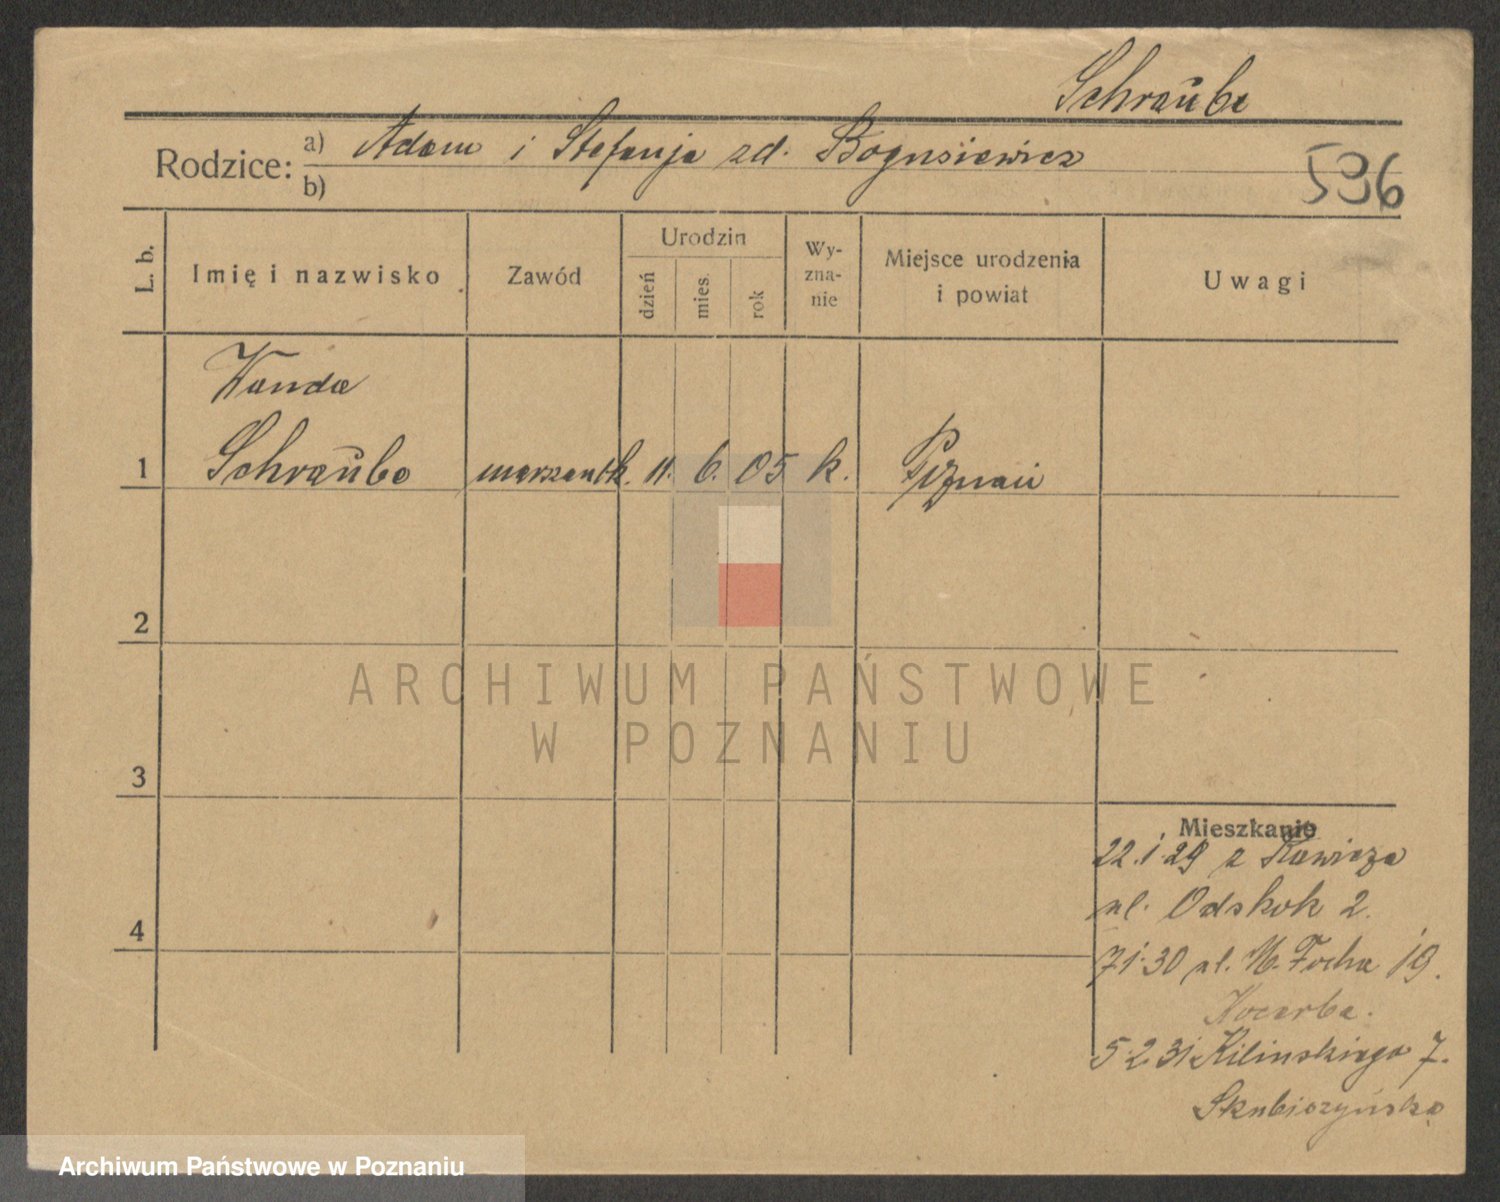 Schraŭbe
Rodzice:
a) Adam i Stefanja zd. Bogusiewicz
b)
536
L. b.
Imię i nazwisko
Zawód
Urodzin
dzień
mies.
rok
Wy-
zna-
nie
Miejsce urodzenia
i powiat
Uwagi
Wanda
1 Schraŭbe 11. 6. 05 k. Poznań
2
3
4
ARCHIWUM PAŃSTWOWE
W POZNANIU
Mieszkanie
22.1.29 z Rawicza
ul. Odskok 2.
7.1.30 ul. M. Focha 19.
5.2.31 Kilinskiego 7.
Archiwum Państwowe w Poznaniu